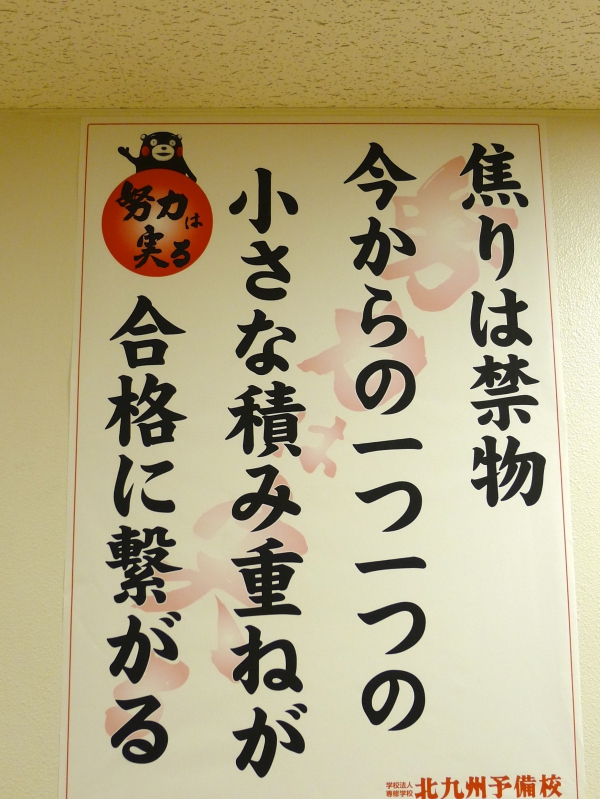 焦りは禁物
今からの一つ一つの
小さな積み重ねが
合格に繋がる
努力は
実る
努力は実る
学校法人
専修学校
北九州予備校